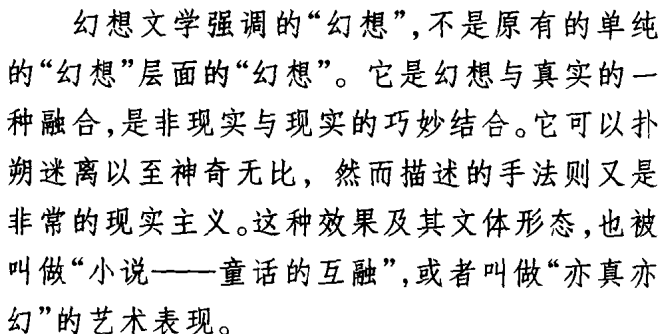 幻想文学强调的“幻想”,不是原有的单纯
的“幻想”层面的“幻想”。它是幻想与真实的一
种融合,是非现实与现实的巧妙结合。它可以扑
朔迷离以至神奇无比，然而描述的手法则又是
非常的现实主义。这种效果及其文体形态,也被
叫做“小说——童话的互融”,或者叫做“亦真亦
幻”的艺术表现。